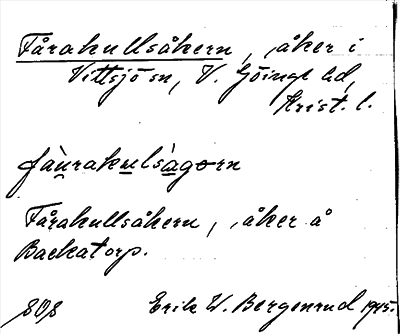 Fårakullsåkern, åker i
Vittsjö sn, V. Göinge hd,
Krist. l.
fàu̠rakul̠sàgorn
Fårakullsåkern, åker å
Backatorp.
Erik W. Bergenrud 1945.